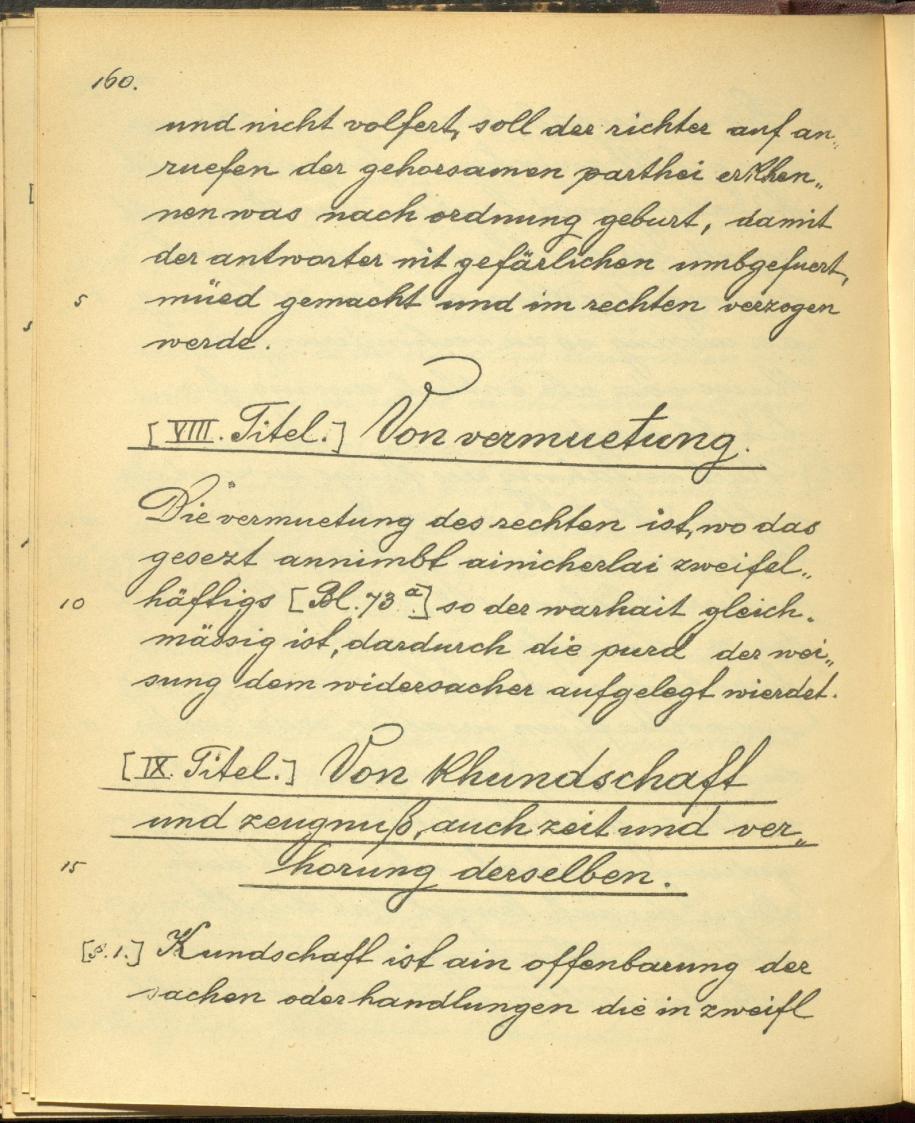 160.
und nicht volfert, soll der richter auf an„
ruefen der gehorsamen parthei erkhen„
nen was nach ordnung geburt, damit
der antworter nit gefärlichen umbgefuert,
5 müed gemacht und im rechten verzogen
werde.
[VIII. Titel.] Von vermuetung.
Die vermuetung des rechten ist, wo das
gesezt annimbt ainicherlai zweifel„
10 häftigs [Bl. 73 a.] so der warhait gleich„
mässig ist, dardurch die purd der wei„
sung dem widersacher aufgelegt wierdet.
[IX. Titel.] Von khundschaft
und zeugnuß, auch zeit und ver„
15 horung derselben.
[§. 1.] Kundschaft ist ain offenbarung der
sachen oder handlungen die in zweifl